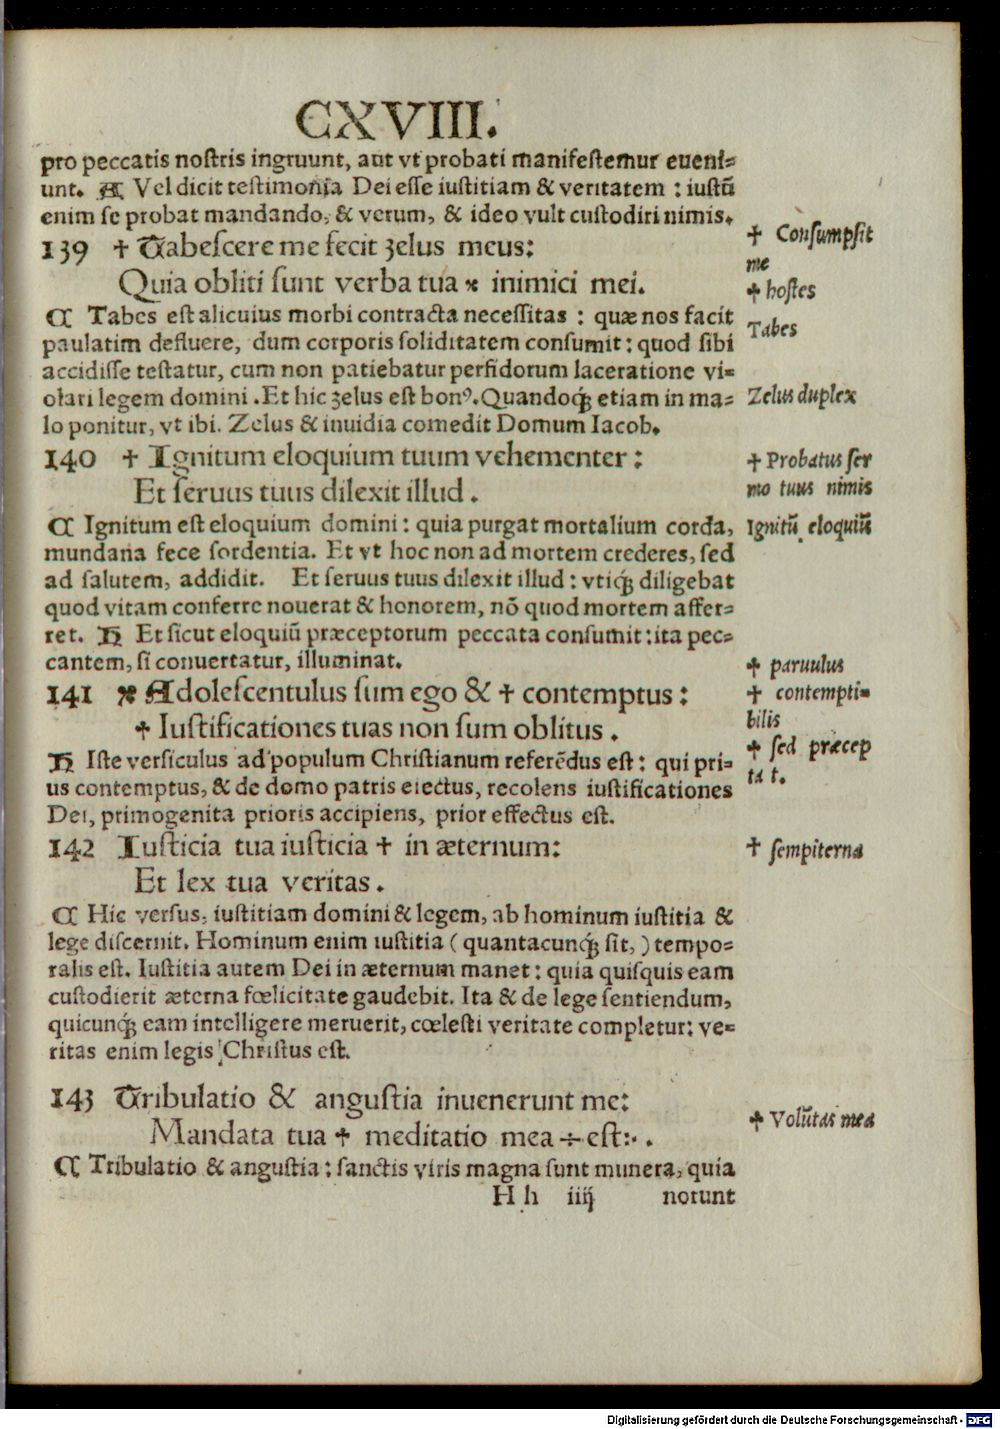 CXVIII.
pro peccatis nostris ingruunt, aut vt probati manifestemur eueni⸗
unt. A Vel dicit testimonia Dei esse iustitiam & veritatem : iustū
enim se probat mandando, & verum, & ideo vult custodiri nimis.
139 ✝ Tabescere me fecit zelus meus:
Quia obliti sunt verba tua ※ inimici mei.
C Tabes est alicuius morbi contracta necessitas : quæ nos facit
paulatim defluere, dum corporis soliditatem consumit : quod sibi
accidisse testatur, cum non patiebatur perfidorum laceratione vi⸗
olari legem domini . Et hic zelus est bonꝰ. Quandoq́ꝫ etiam in ma⸗
lo ponitur, vt ibi. Zelus & inuidia comedit Domum Iacob.
140 ✝ Ignitum eloquium tuum vehementer :
Et seruus tuus dilexit illud .
C Ignitum est eloquium domini : quia purgat mortalium corda,
mundana fece sordentia. Et vt hoc non ad mortem crederes, sed
ad salutem, addidit. Et seruus tuus dilexit illud : vtiq́ꝫ diligebat
quod vitam conferre nouerat & honorem, nō quod mortem affer⸗
ret. H Et sicut eloquiū præceptorum peccata consumit : ita pec⸗
cantem, si conuertatur, illuminat.
141 ※ Adolescentulus sum ego & ✝ contemptus :
✝ Iustificationes tuas non sum oblitus .
H Iste versiculus ad populum Christianum referēdus est : qui pri⸗
us contemptus, & de domo patris eiectus, recolens iustificationes
Dei, primogenita prioris accipiens, prior effectus est.
142 Iusticia tua iusticia ✝ in æternum:
Et lex tua veritas .
C Hic versus, iustitiam domini & legem, ab hominum iustitia &
lege discernit. Hominum enim iustitia ( quantacunq́ꝫ sit, ) tempo⸗
ralis est. Iustitia autem Dei in æternum manet : quia quisquis eam
custodierit æterna fœlicitate gaudebit. Ita & de lege sentiendum,
quicunq́ꝫ eam intelligere meruerit, cœlesti veritate completur : ve⸗
ritas enim legis Christus est.
143 Tribulatio & angustia inuenerunt me:
Mandata tua ✝ meditatio mea ÷ est:· .
C Tribulatio & angustia : sanctis viris magna sunt munera, quia
H h iiij norunt
✝ Consumpsit
me
✝ hostes
Tabes
Zelus duplex
✝ Probatus ser
mo tuus nimis
Ignitū eloquiū
✝ paruulus
✝ contempti⸗
bilis
✝ sed præcep
ta t.
✝ sempiterna
✝ Volūtas mea
Digitalisierung gefördert durch die Deutsche Forschungsgemeinschaft - DFG